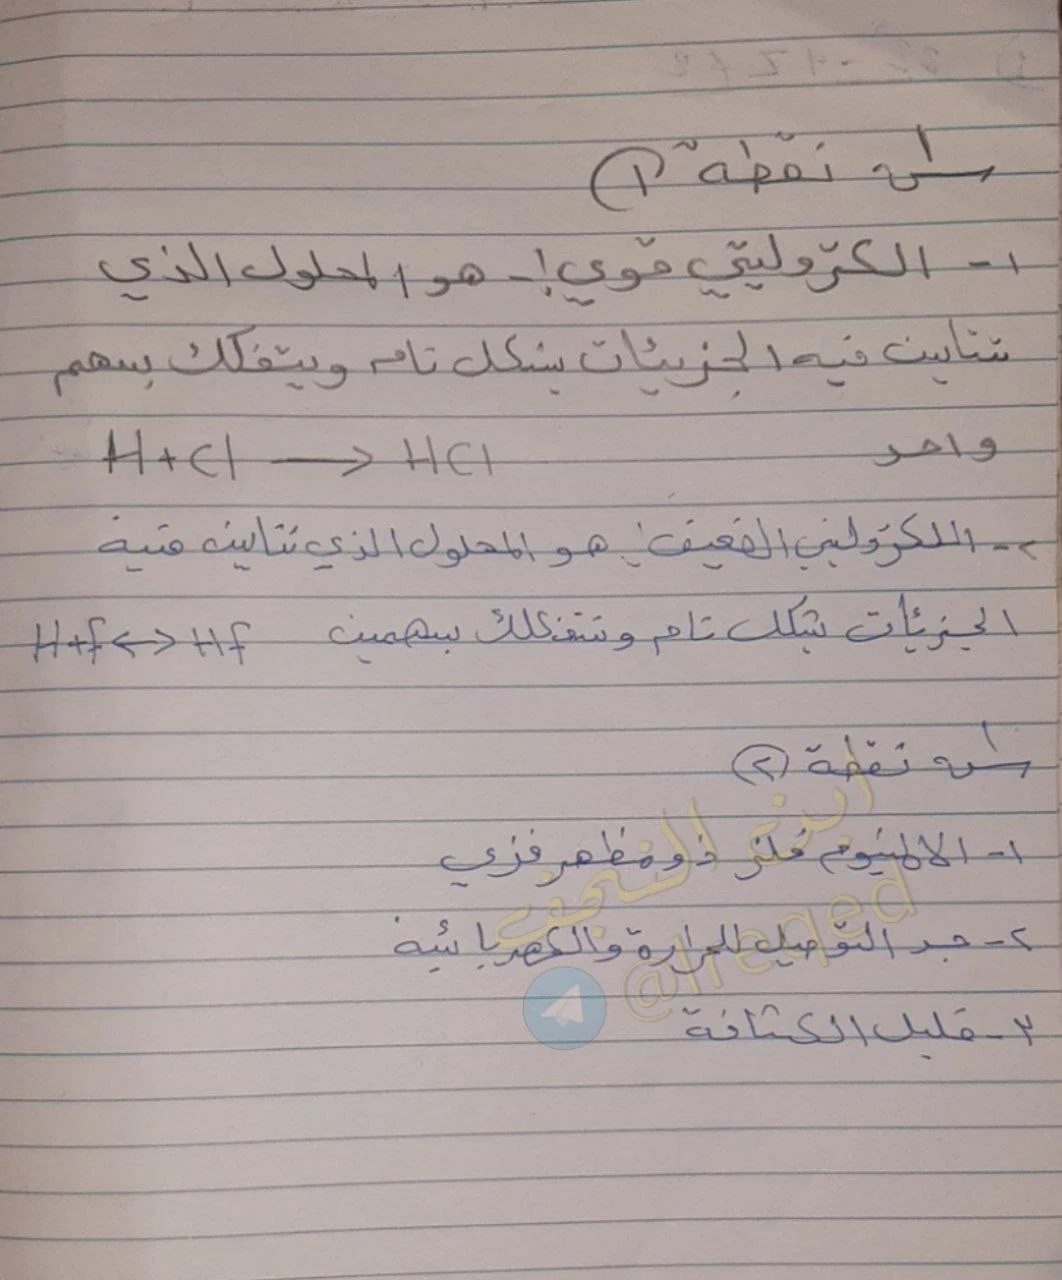 س١ نقطة ١
١- الكتروليتي قوي :- هو المحلول الذي
تتأين فيه الجزيئات بشكل تام ويتفكك بسهم
واحد HCl → H+Cl
٢- اللكتروليتي الضعيف : هو المحلول الذي تتأين فية
الجزيئات بشكل تام وتتفكك بسهمين Hf ↔ H+f
س١ نقطة ٢
١- الالمنيوم فلز ذو مظهر فزي
٢- جد التوصيل للحرارة والكهربائية
٣- قليل الكثافة